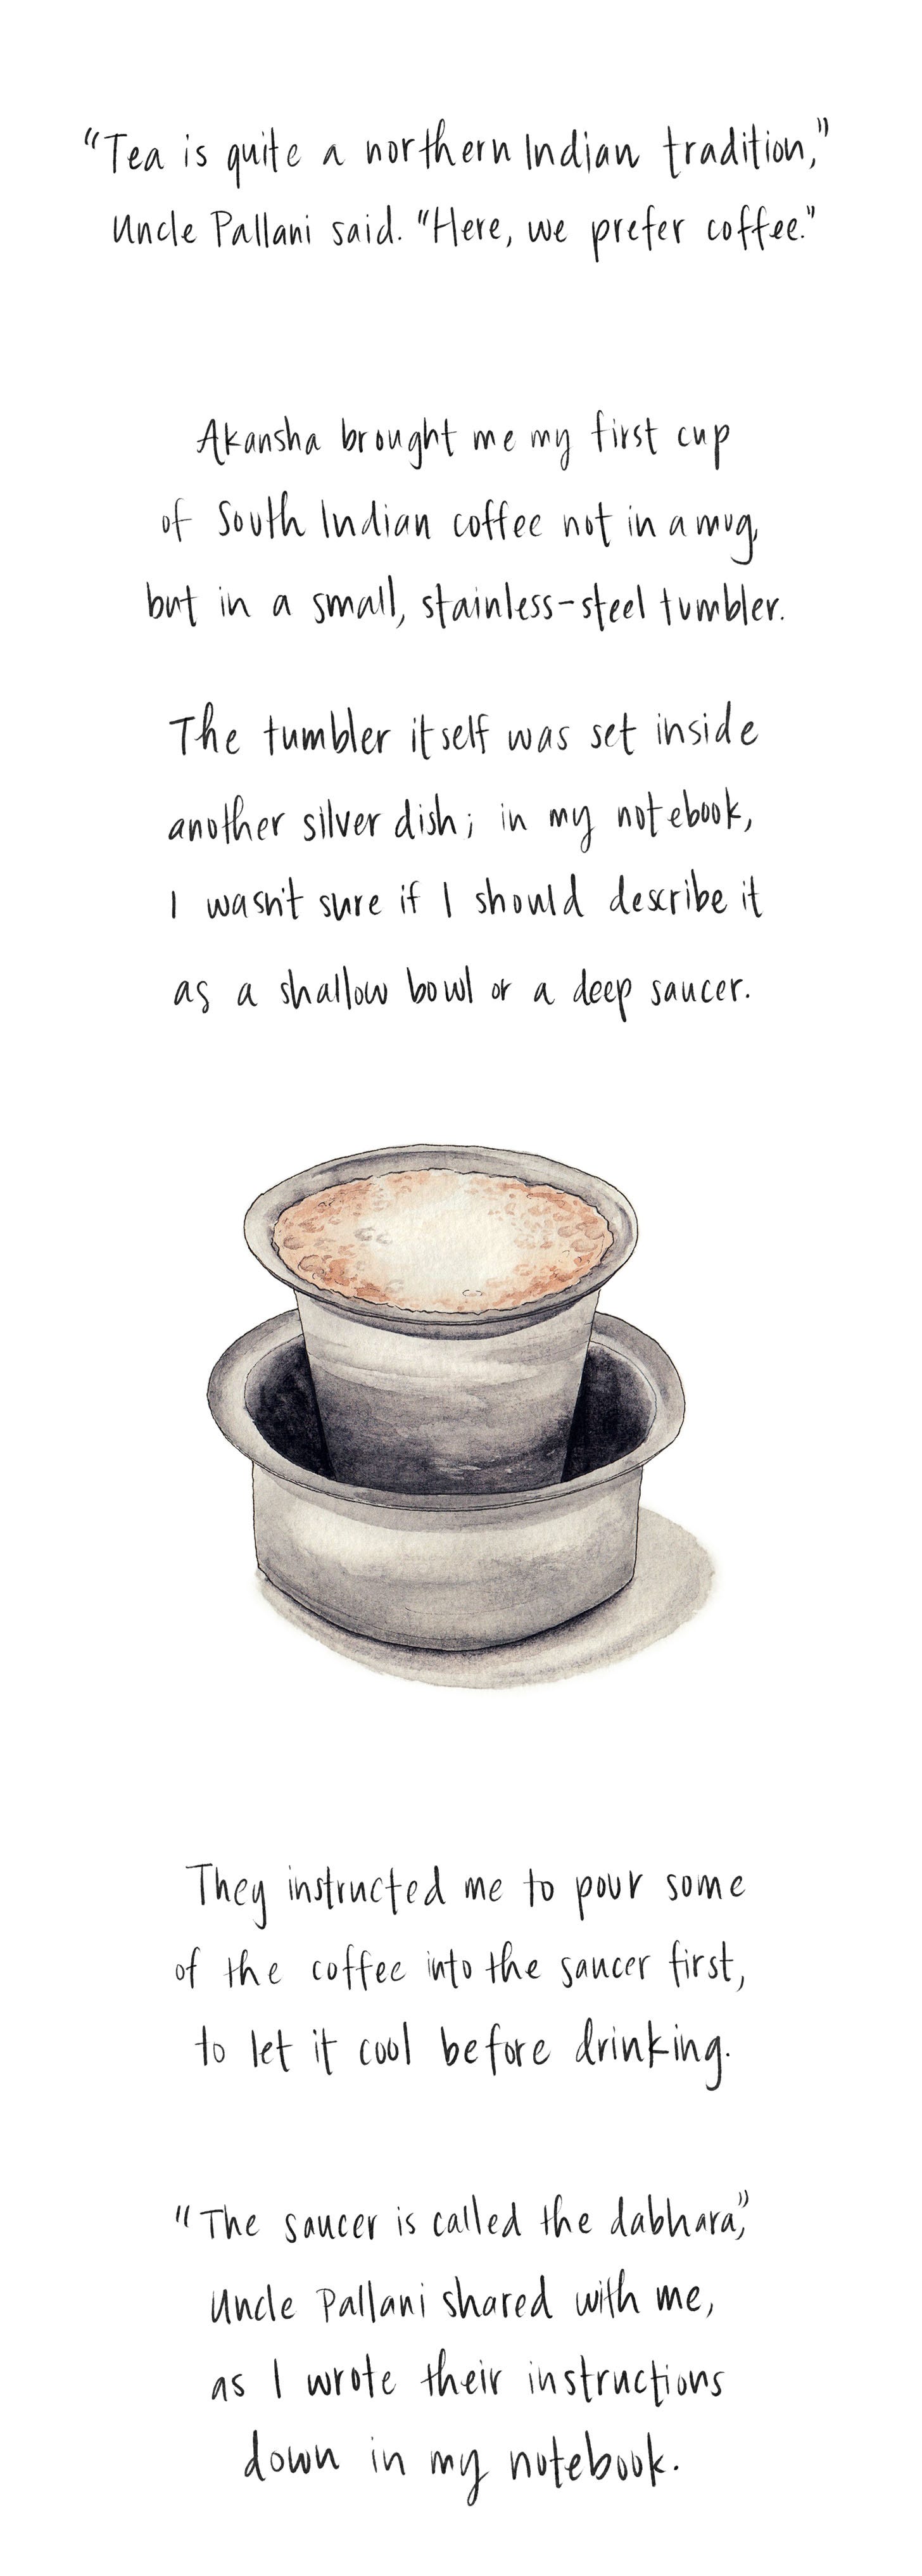 “Tea is quite a northern Indian tradition,”
Uncle Pallani said. “Here, we prefer coffee.”
Akansha brought me my first cup
of South Indian coffee not in a mug,
but in a small, stainless-steel tumbler.
The tumbler itself was set inside
another silver dish; in my notebook,
I wasn't sure if I should describe it
as a shallow bowl or a deep saucer.
They instructed me to pour some
of the coffee into the saucer first,
to let it cool before drinking.
“The saucer is called the dabhara,”
Uncle Pallani shared with me,
as I wrote their instructions
down in my notebook.